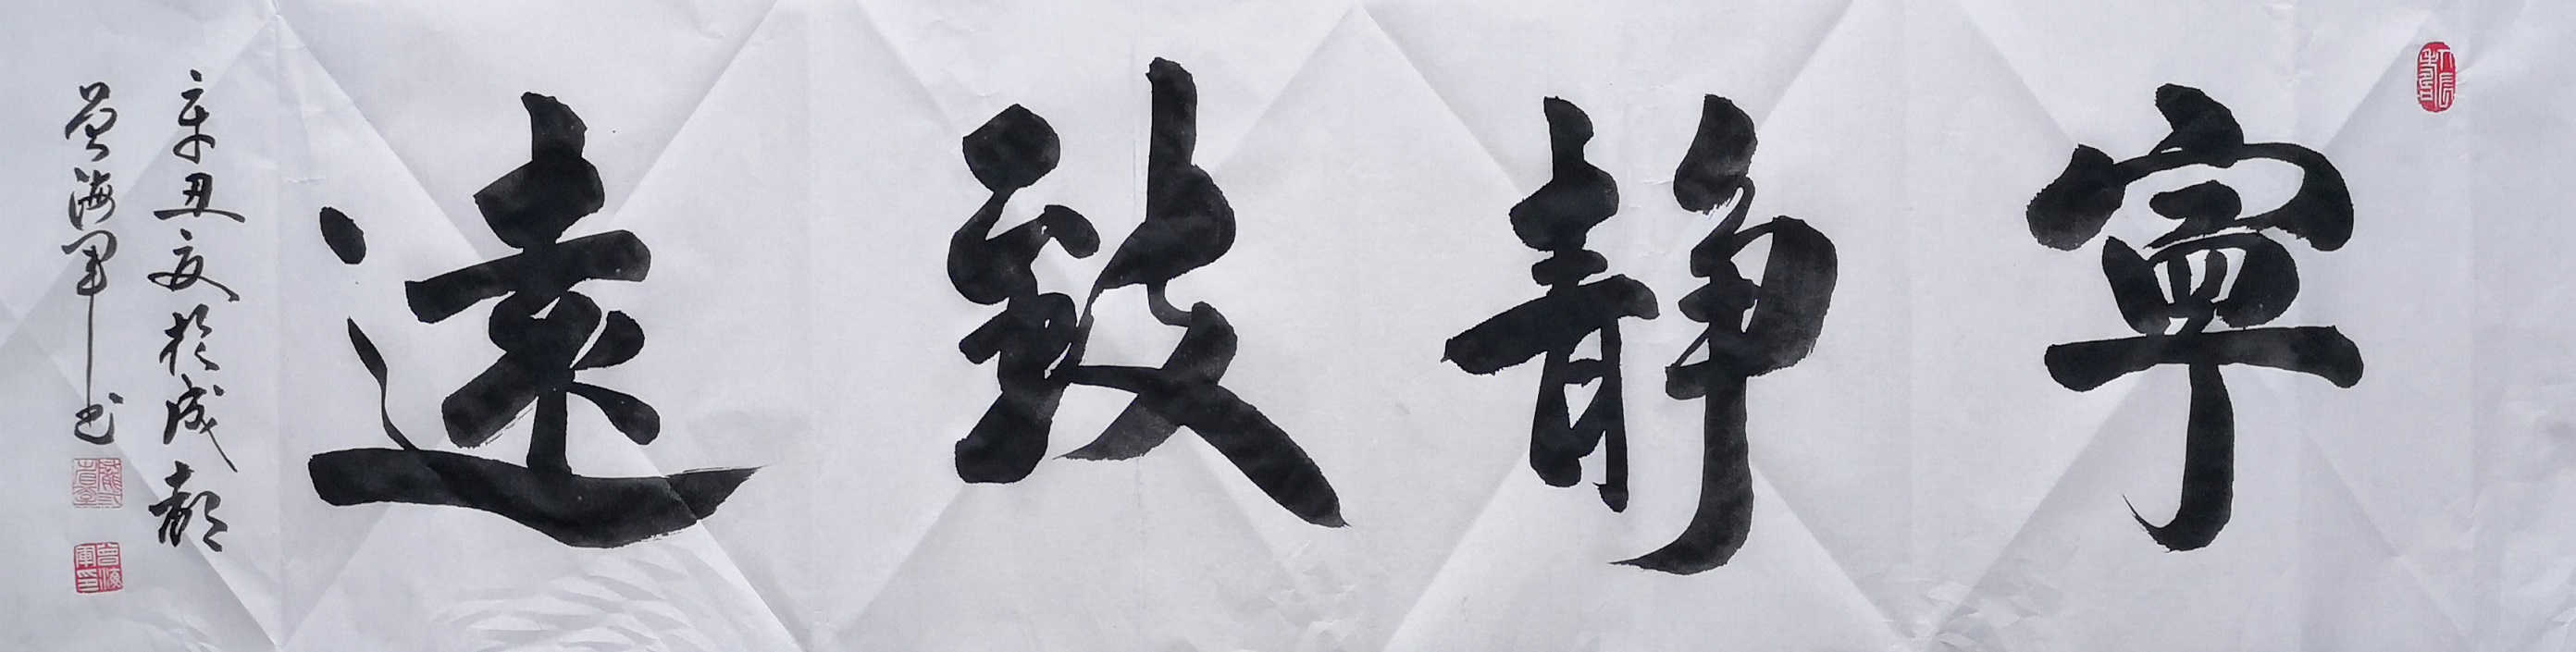 寧靜致遠
辛丑夏於成都
曾海軍书